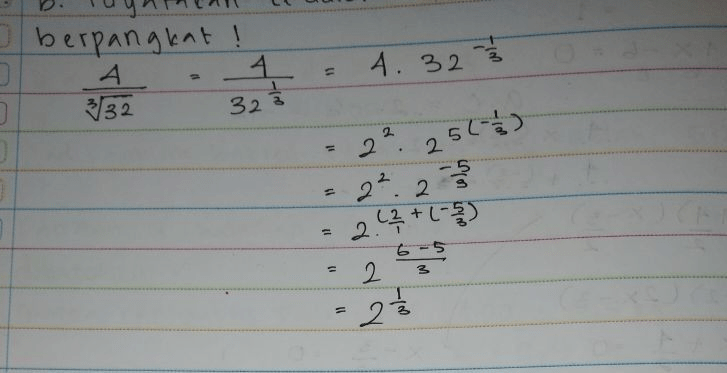 berpangkat !
4/∛32 = 4/32^(1/3) = 4 . 32^(-1/3)
= 2² . 2^(5(-1/3))
= 2² . 2^(-5/3)
= 2^(2/1 + (-5/3))
= 2^((6-5)/3)
= 2^(1/3)